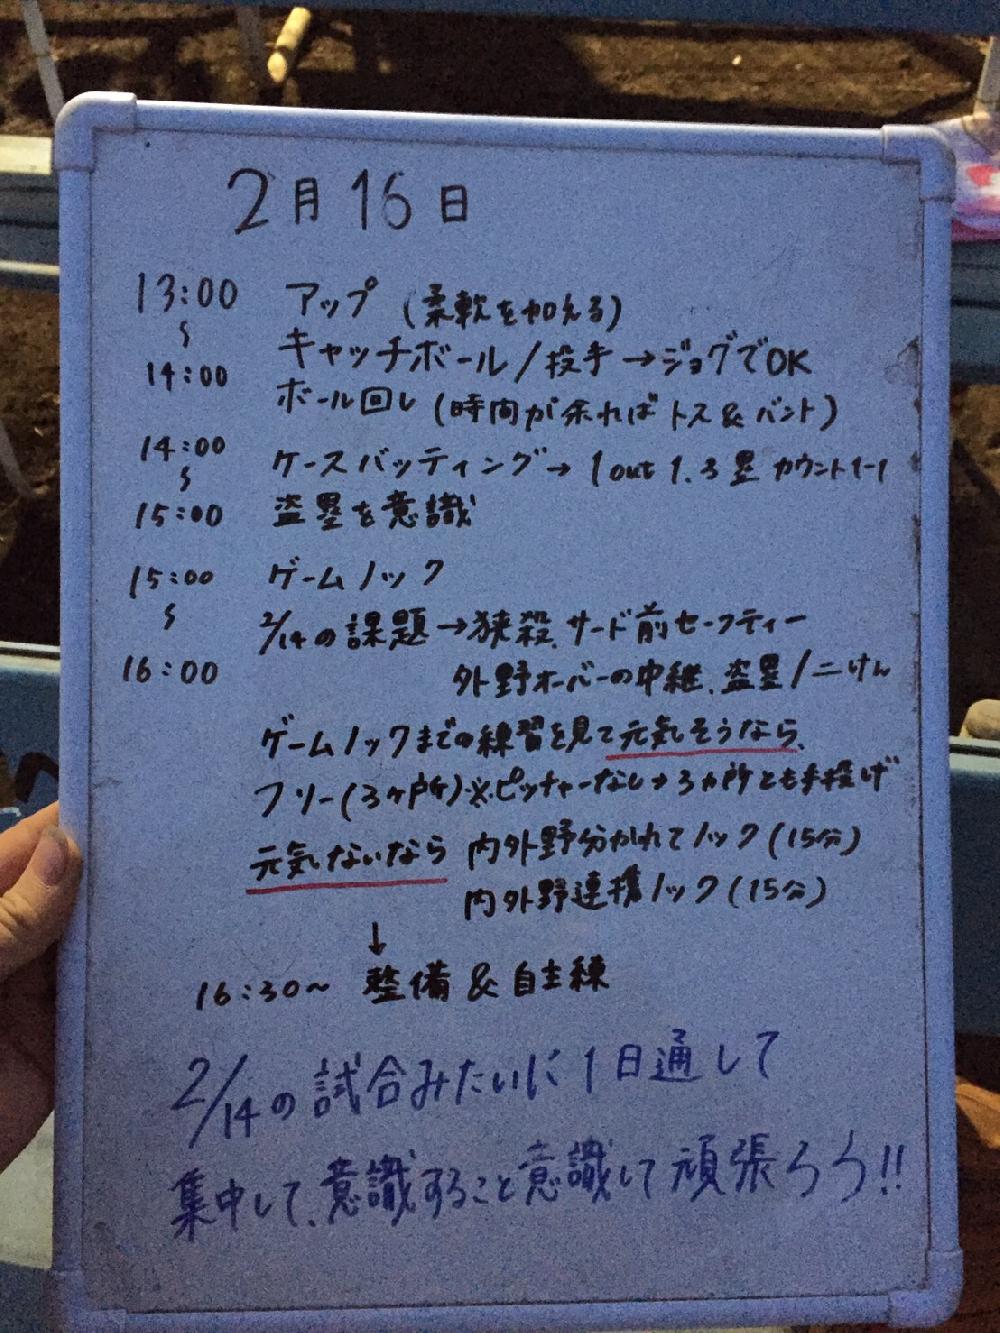 2月16日
13:00 アップ (柔軟を加える)
〜 キャッチボール/投手→ジョグでOK
14:00 ボール回し (時間が余ればトス&バント)
14:00 ケースバッティング→ 1out 1.3塁 カウント1-1
〜
15:00 盗塁を意識
15:00 ゲームノック
〜 2/14の課題→狭殺、サード前セーフティー
16:00 外野オーバーの中継、盗塁/二けん
ゲームノックまでの練習を見て元気そうなら、
フリー(3ヶ所)※ピッチャーなし→3ヵ所とも手投げ
元気ないなら 内外野分かれてノック(15分)
内外野連携ノック(15分)
↓
16:30〜 整備&自主練
2/14の試合みたいに1日通して
集中して、意識すること意識して頑張ろう!!